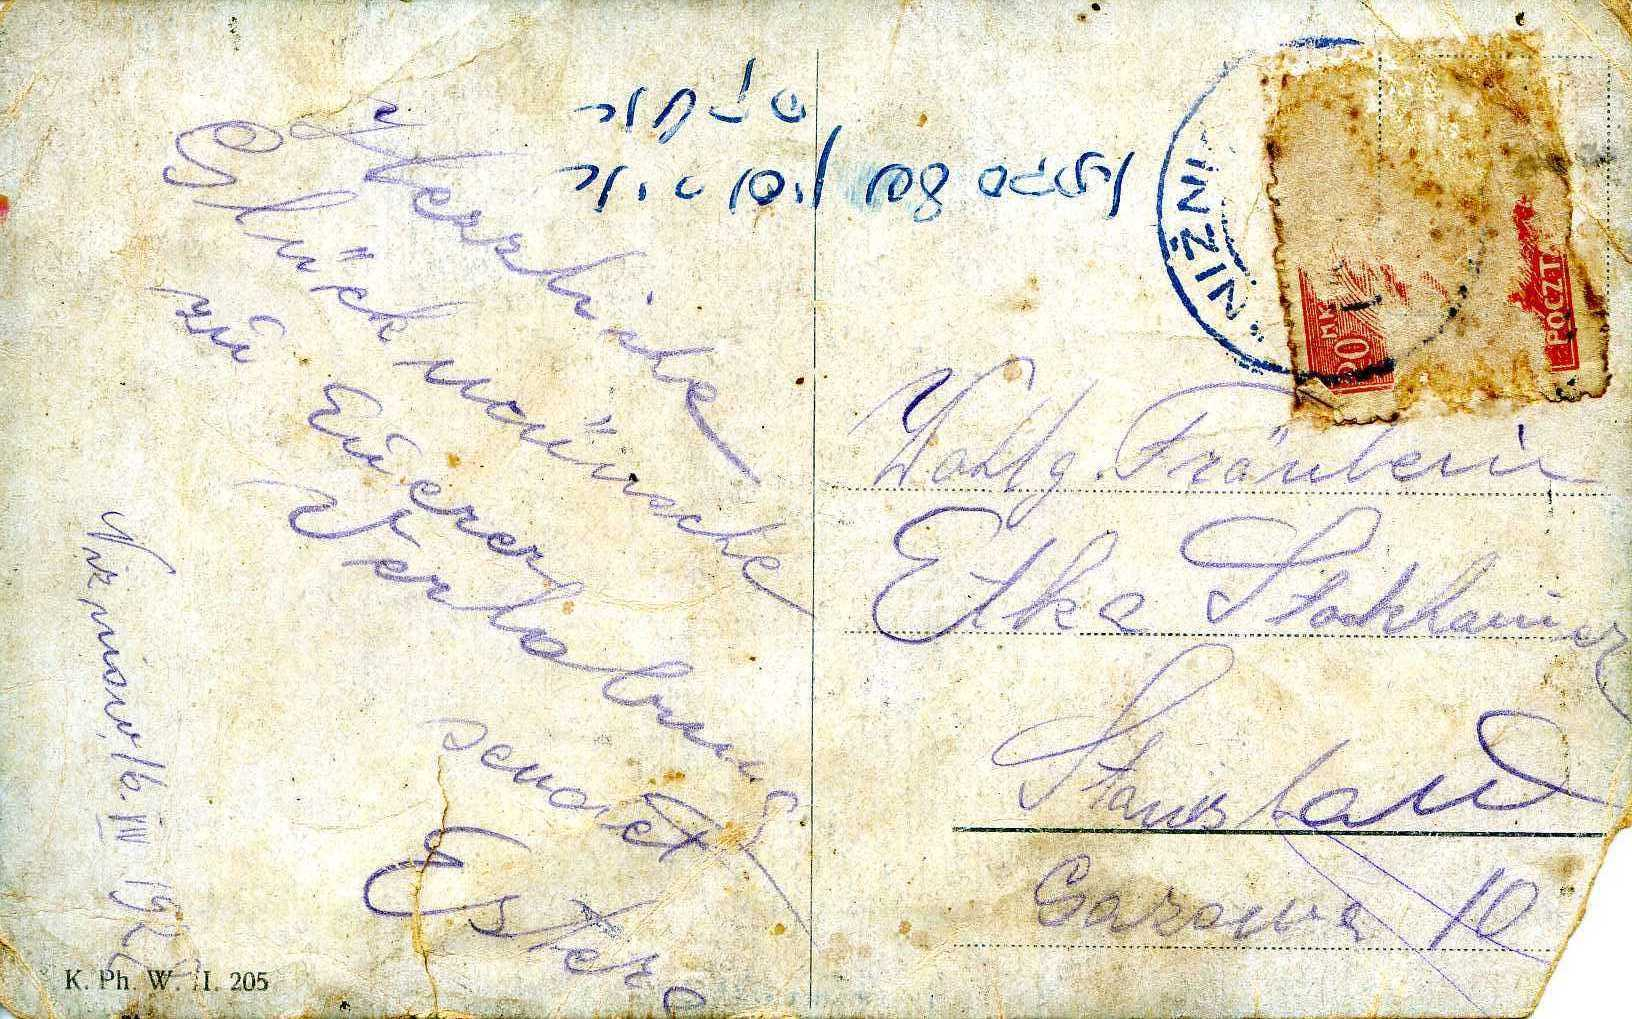 Herzliche
Glückwünsche
zu Euerer
Verlobung
sendet
Ester
Niżniow, 16. III 192
K. Ph. W. II. 205
NIŻNI
20 MK
POCZT
Wohlg. Fräulein
Etka Stockhamer
Stanislau
Gazowa 10